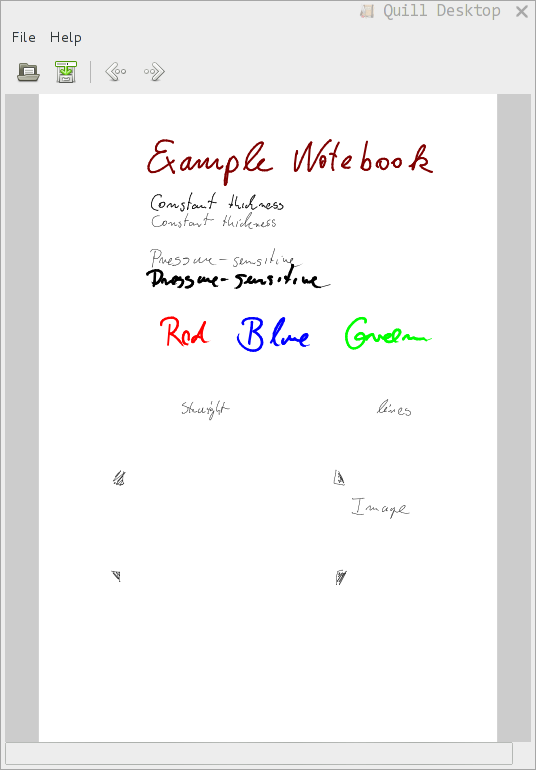 Quill Desktop
File Help
Example Notebook
Constant thickness
Constant thickness
Pressure-sensitive
Pressure-sensitive
Red Blue Green
Straight lines
Image